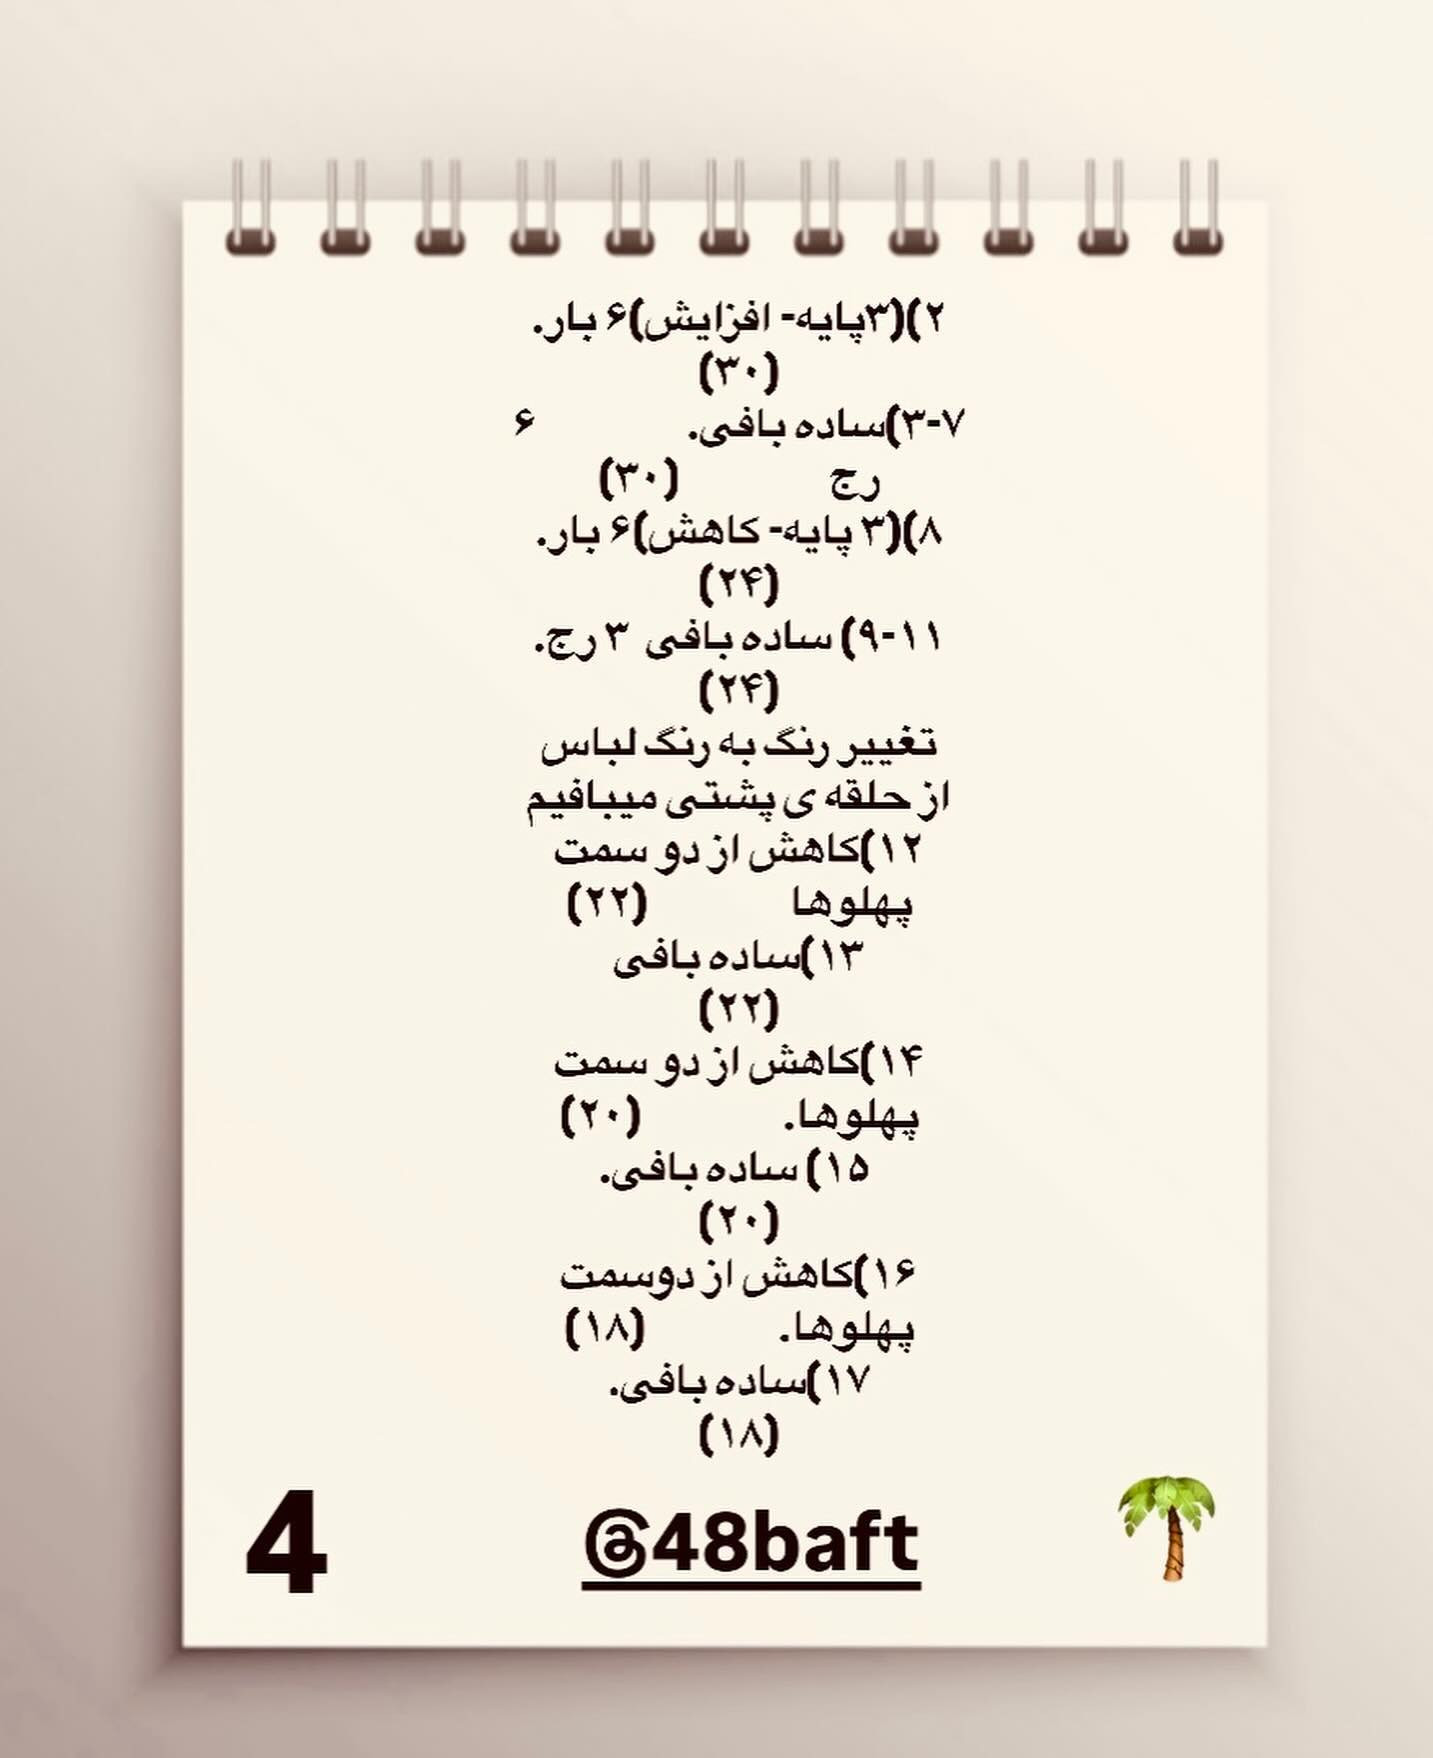 ۲)(۳پایه- افزایش)۶ بار.
(۳۰)
۳-۷)ساده بافی. ۶
رج (۳۰)
۸)(۳ پایه- کاهش)۶ بار.
(۲۴)
۹-۱۱) ساده بافی ۳ رج.
(۲۴)
تغییر رنگ به رنگ لباس
از حلقه ی پشتی میبافیم
۱۲)کاهش از دو سمت
پهلوها (۲۲)
۱۳)ساده بافی
(۲۲)
۱۴)کاهش از دو سمت
پهلوها. (۲۰)
۱۵) ساده بافی.
(۲۰)
۱۶)کاهش از دوسمت
پهلوها. (۱۸)
۱۷)ساده بافی.
(۱۸)
4 @48baft